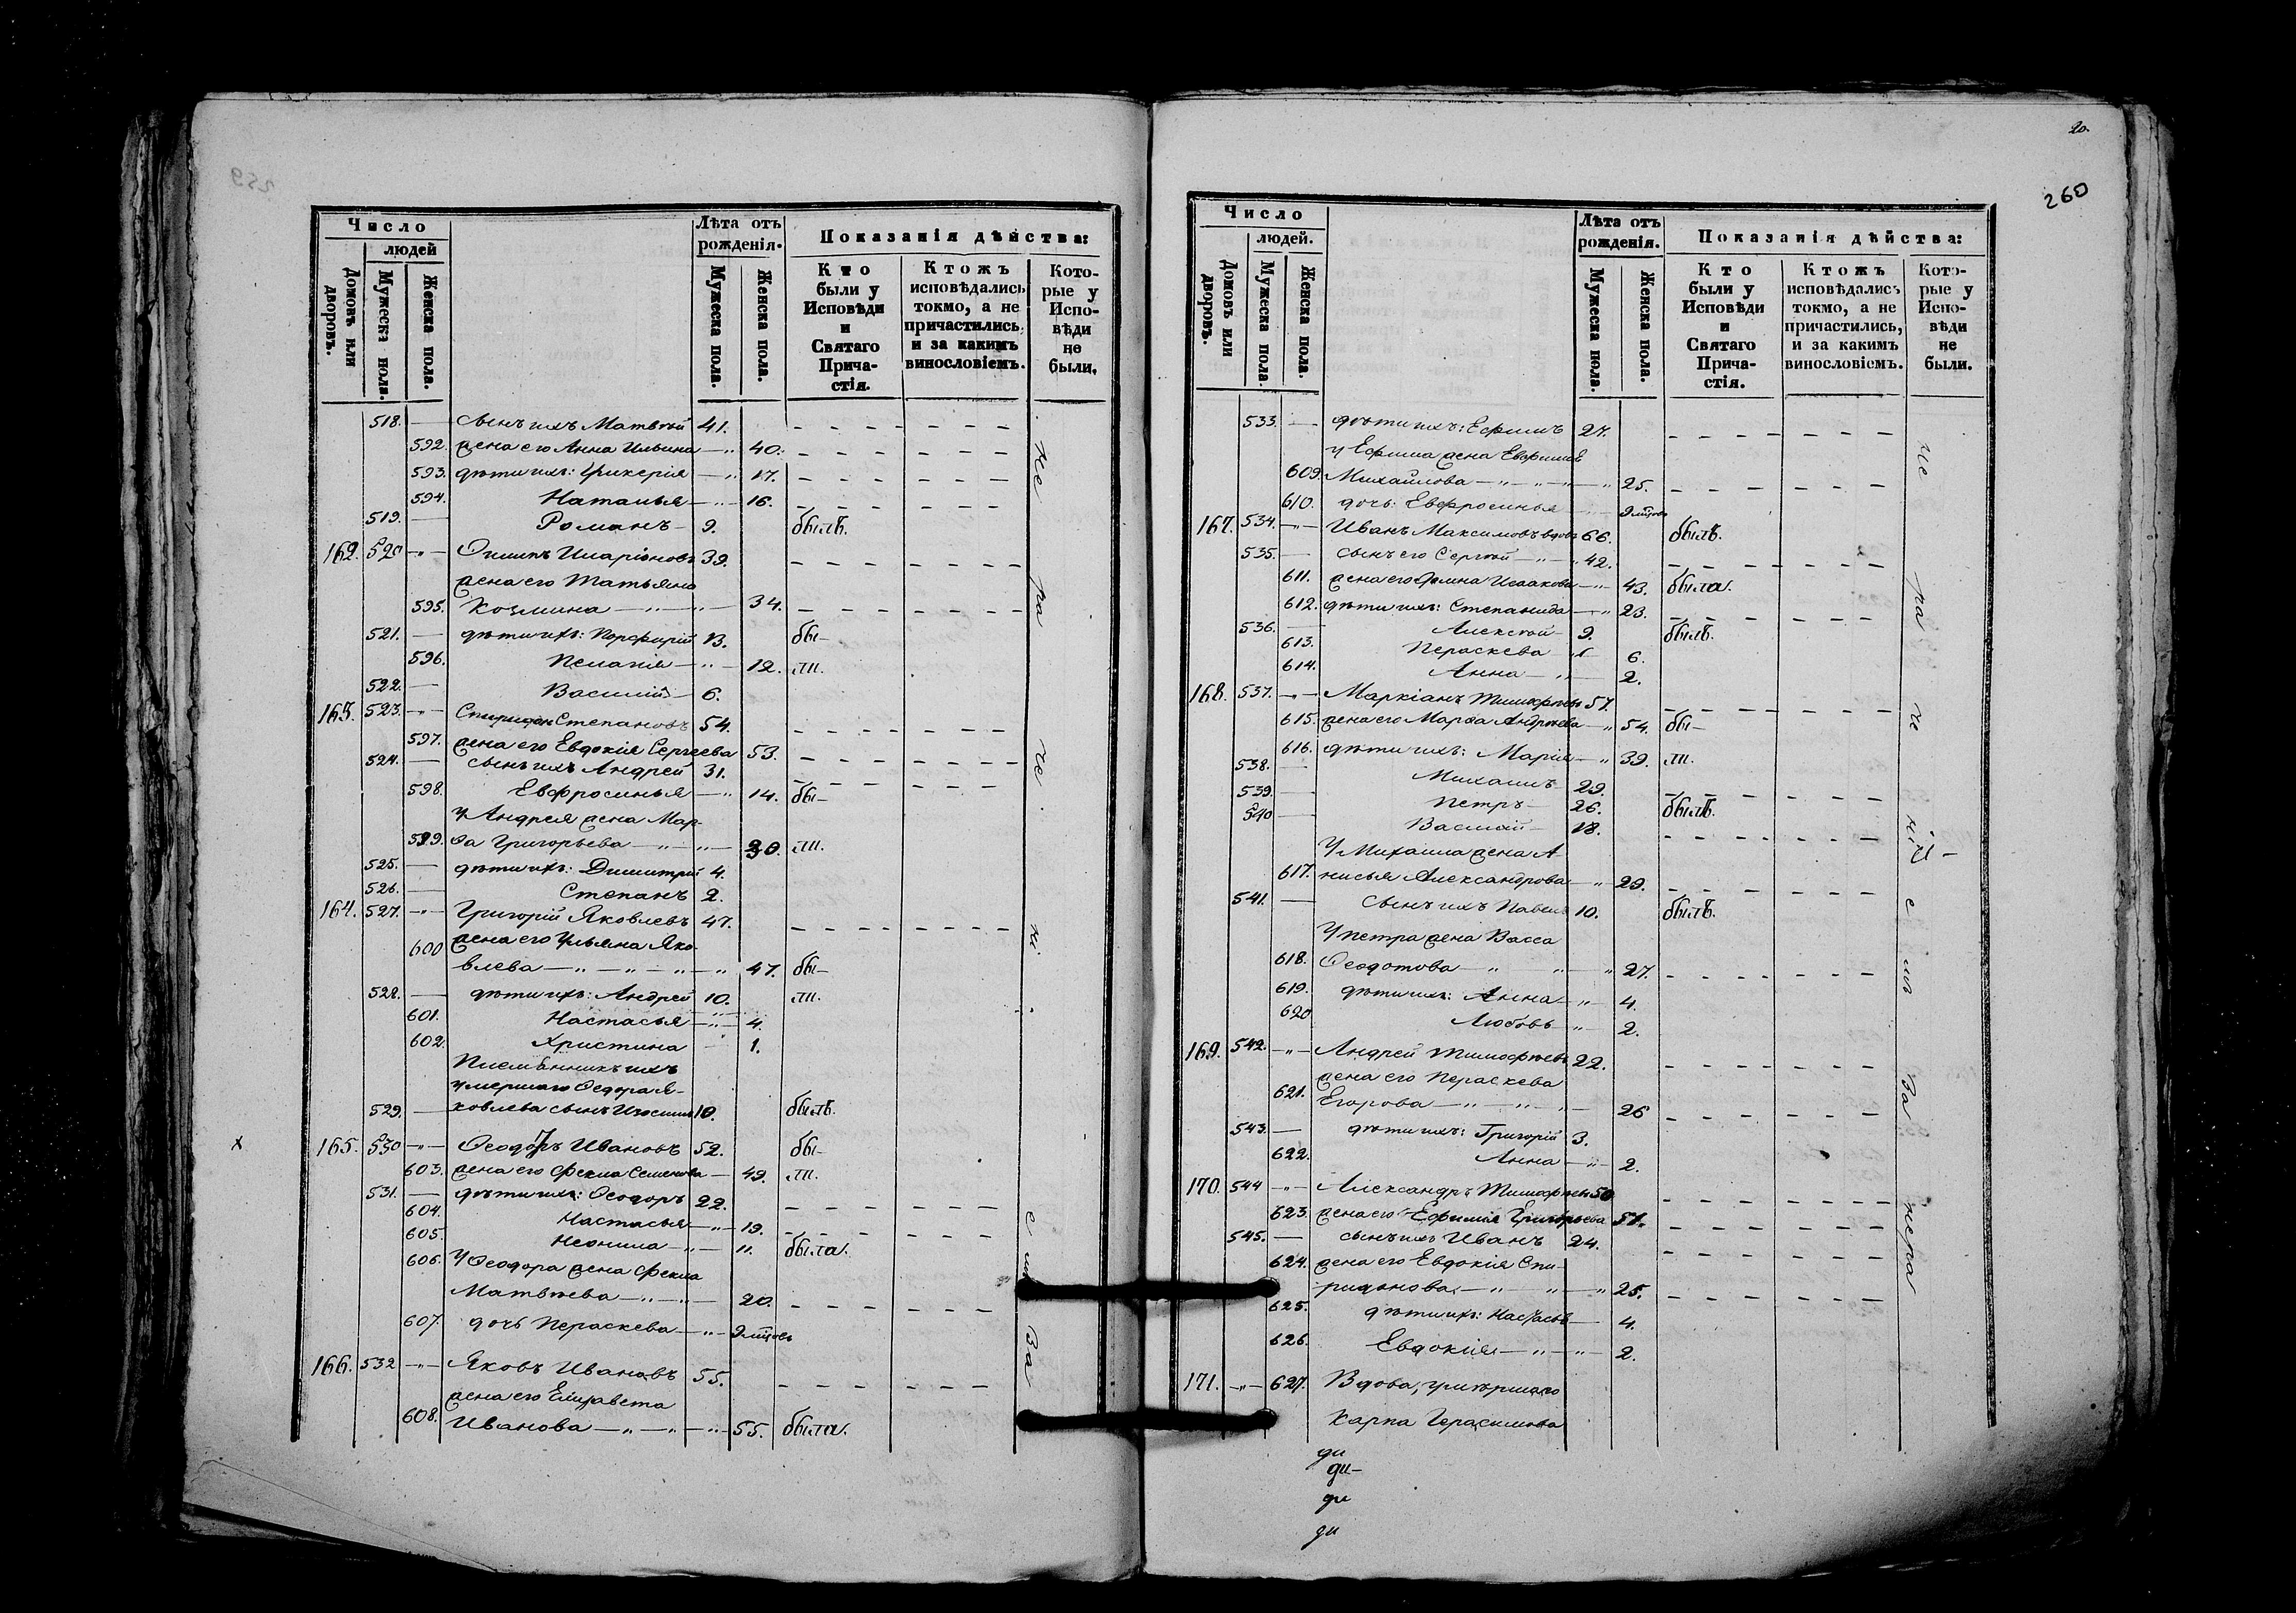 259
Число
людей
Домовъ или дворовъ.
Мужеска пола.
Женска пола.
Лѣта отъ рожденія.
Мужеска пола.
Женска пола.
Показанія дѣйства:
Кто были у Исповѣди и Святаго Прича-стія.
Ктожъ исповѣдались токмо, а не причастились, и за какимъ винословіемъ.
Кото-рые у Испо-вѣди не были.
518. — сынъ ихъ Матвѣй 41.
592. жена его Анна Ильина — 40.
593. дѣти ихъ: Гликерія — 17.
594. Наталья — 16.
519. — Романъ 9. былъ.
162. 520 — Осипъ Иларіоновъ 39.
жена его Татьяна
595. Козмина — 34.
521. — дѣти ихъ: Порфирій 13. бы-
596. Пелагія — 12. ли.
522. — Василій 6.
163. 523. — Спиридонъ Степановъ 54.
597. жена его Евдокія Сергеева 53.
524. — сынъ ихъ Андрей 31.
598. Евфросинья — 14. бы-
у Андрея жена Мар-
599. ѳа Григорьева — 30. ли.
525. — дѣти ихъ: Димитрій 4.
526. — Степанъ 2.
164. 527. — Григорій Яковлевъ 47.
600 жена его Ульяна Яко-
влева — 47. бы-
528. — дѣти ихъ: Андрей 10. ли.
601. Настасья — 4.
602. Христина — 1.
Племянникъ ихъ
умершаго Ѳедора Я-
529. — ковлева сынъ 10. былъ.
х 165. 530 — Ѳеодоръ Ивановъ 52. бы-
603. жена его Фекла Семенова — 49. ли.
531. — дѣти ихъ: Ѳеодоръ 22.
604. Настасья — 19.
605. Неонила — 11. была.
606. У Ѳеодора жена Фекла
Матвѣева — 20.
607. дочь Пераскева — 9 мцовъ
166. 532 — Яковъ Ивановъ 55.
жена его Елизавета
608. Иванова — 55. была.
не ра че ні е мъ За
20.
260
Число
людей.
Домовъ или дворовъ.
Мужеска пола.
Женска пола.
Лѣта отъ рожденія.
Мужеска пола.
Женска пола.
Показанія дѣйства:
Кто были у Исповѣди и Святаго Прича-стія.
Ктожъ исповѣдались токмо, а не причастились, и за какимъ винословіемъ.
Кото-рые у Испо-вѣди не были.
533. — дѣти ихъ: Ефимъ 27.
у Ефима жена
609. Михайлова — 25.
610. дочь: Евфросинья — 9 мцовъ
167. 534. — Иванъ Максимовъ вдовъ 66. былъ.
535. — сынъ его Сергѣй — 42.
611. жена его Исаакова — 43. была.
612. дѣти ихъ: Степанида — 23.
536. — Алексѣй 9. былъ.
613. Пераскева 6.
614. Анна — 2.
168. 537. — Маркіанъ Тимофѣевъ 57.
615. жена его Марѳа Андрѣева — 54. бы-
616. дѣти ихъ: Марія — 39. ли.
538. — Михаилъ 29.
539. — Петръ 26. былъ.
540 — Василій 18.
У Михаила жена А
617. нисья Александрова — 29.
541. — сынъ ихъ Павелъ 10. былъ.
У Петра жена Васса
618. Ѳеодотова — 27.
619. дѣти ихъ: Анна — 4.
620 Любовь — 2.
169. 542. — Андрей Тимофѣевъ 22.
жена его Пераскева
621. Егорова — 26
543. — дѣти ихъ: Григорій 3.
622. Анна — 2.
170. 544 — Александръ Тимофѣевъ 50
623. жена его Ефимія Григорьева 51.
545. — сынъ ихъ Иванъ 24.
624. жена его Евдокія Спи-
ридонова — 25.
625. дѣти ихъ: Настасья — 4.
626. Евдокія — 2.
171. — 627. Вдова, умершаго
Карпа Герасимова
не ра че ніе мъ За нера
ди
ди-
ди
ди